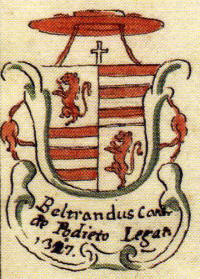 Beltrandus Card
de Podieto Legat.
1327.